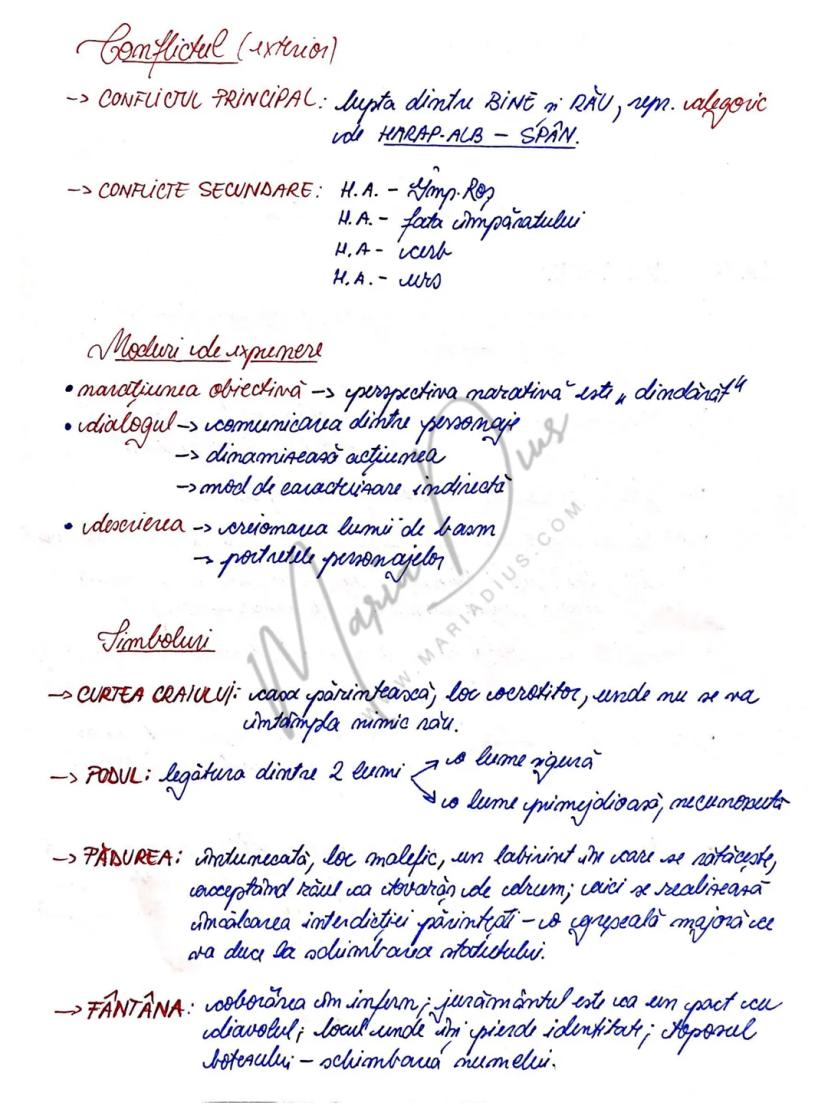 Conflictul (exterior)
-> CONFLICTUL PRINCIPAL: lupta dintre BINE și RĂU, repr. alegoric
de HARAP-ALB – SPÂN.
-> CONFLICTE SECUNDARE: H.A. - Împ. Roș
H.A. - fata împăratului
H.A - cerb
H.A. - urs
Moduri de expunere
• narațiunea obiectivă -> perspectiva narativă este „dindărăt"
• dialogul -> comunicarea dintre personaje
-> dinamizează acțiunea
-> mod de caracterizare indirectă
• descrierea -> creionarea lumii de basm
-> portretele personajelor
Simboluri
-> CURTEA CRAIULUI: casa părintească, loc ocrotitor, unde nu se va
întâmpla nimic rău.
-> PODUL: legătura dintre 2 lumi -> o lume sigură
-> o lume primejdioasă, necunoscută
-> PĂDUREA: întunecată, loc malefic, un labirint în care se rătăcește,
acceptând răul ca tovarăș de drum; aici se realizează
încălcarea interdicției părintești – o greșeală majoră ce
va duce la schimbarea statutului.
-> FÂNTÂNA: coborârea în infern; jurământul este ca un pact cu
diavolul; locul unde își pierde identitate; toposul
botezului – schimbarea numelui.
Maria Dius
WWW.MARIADIUS.COM